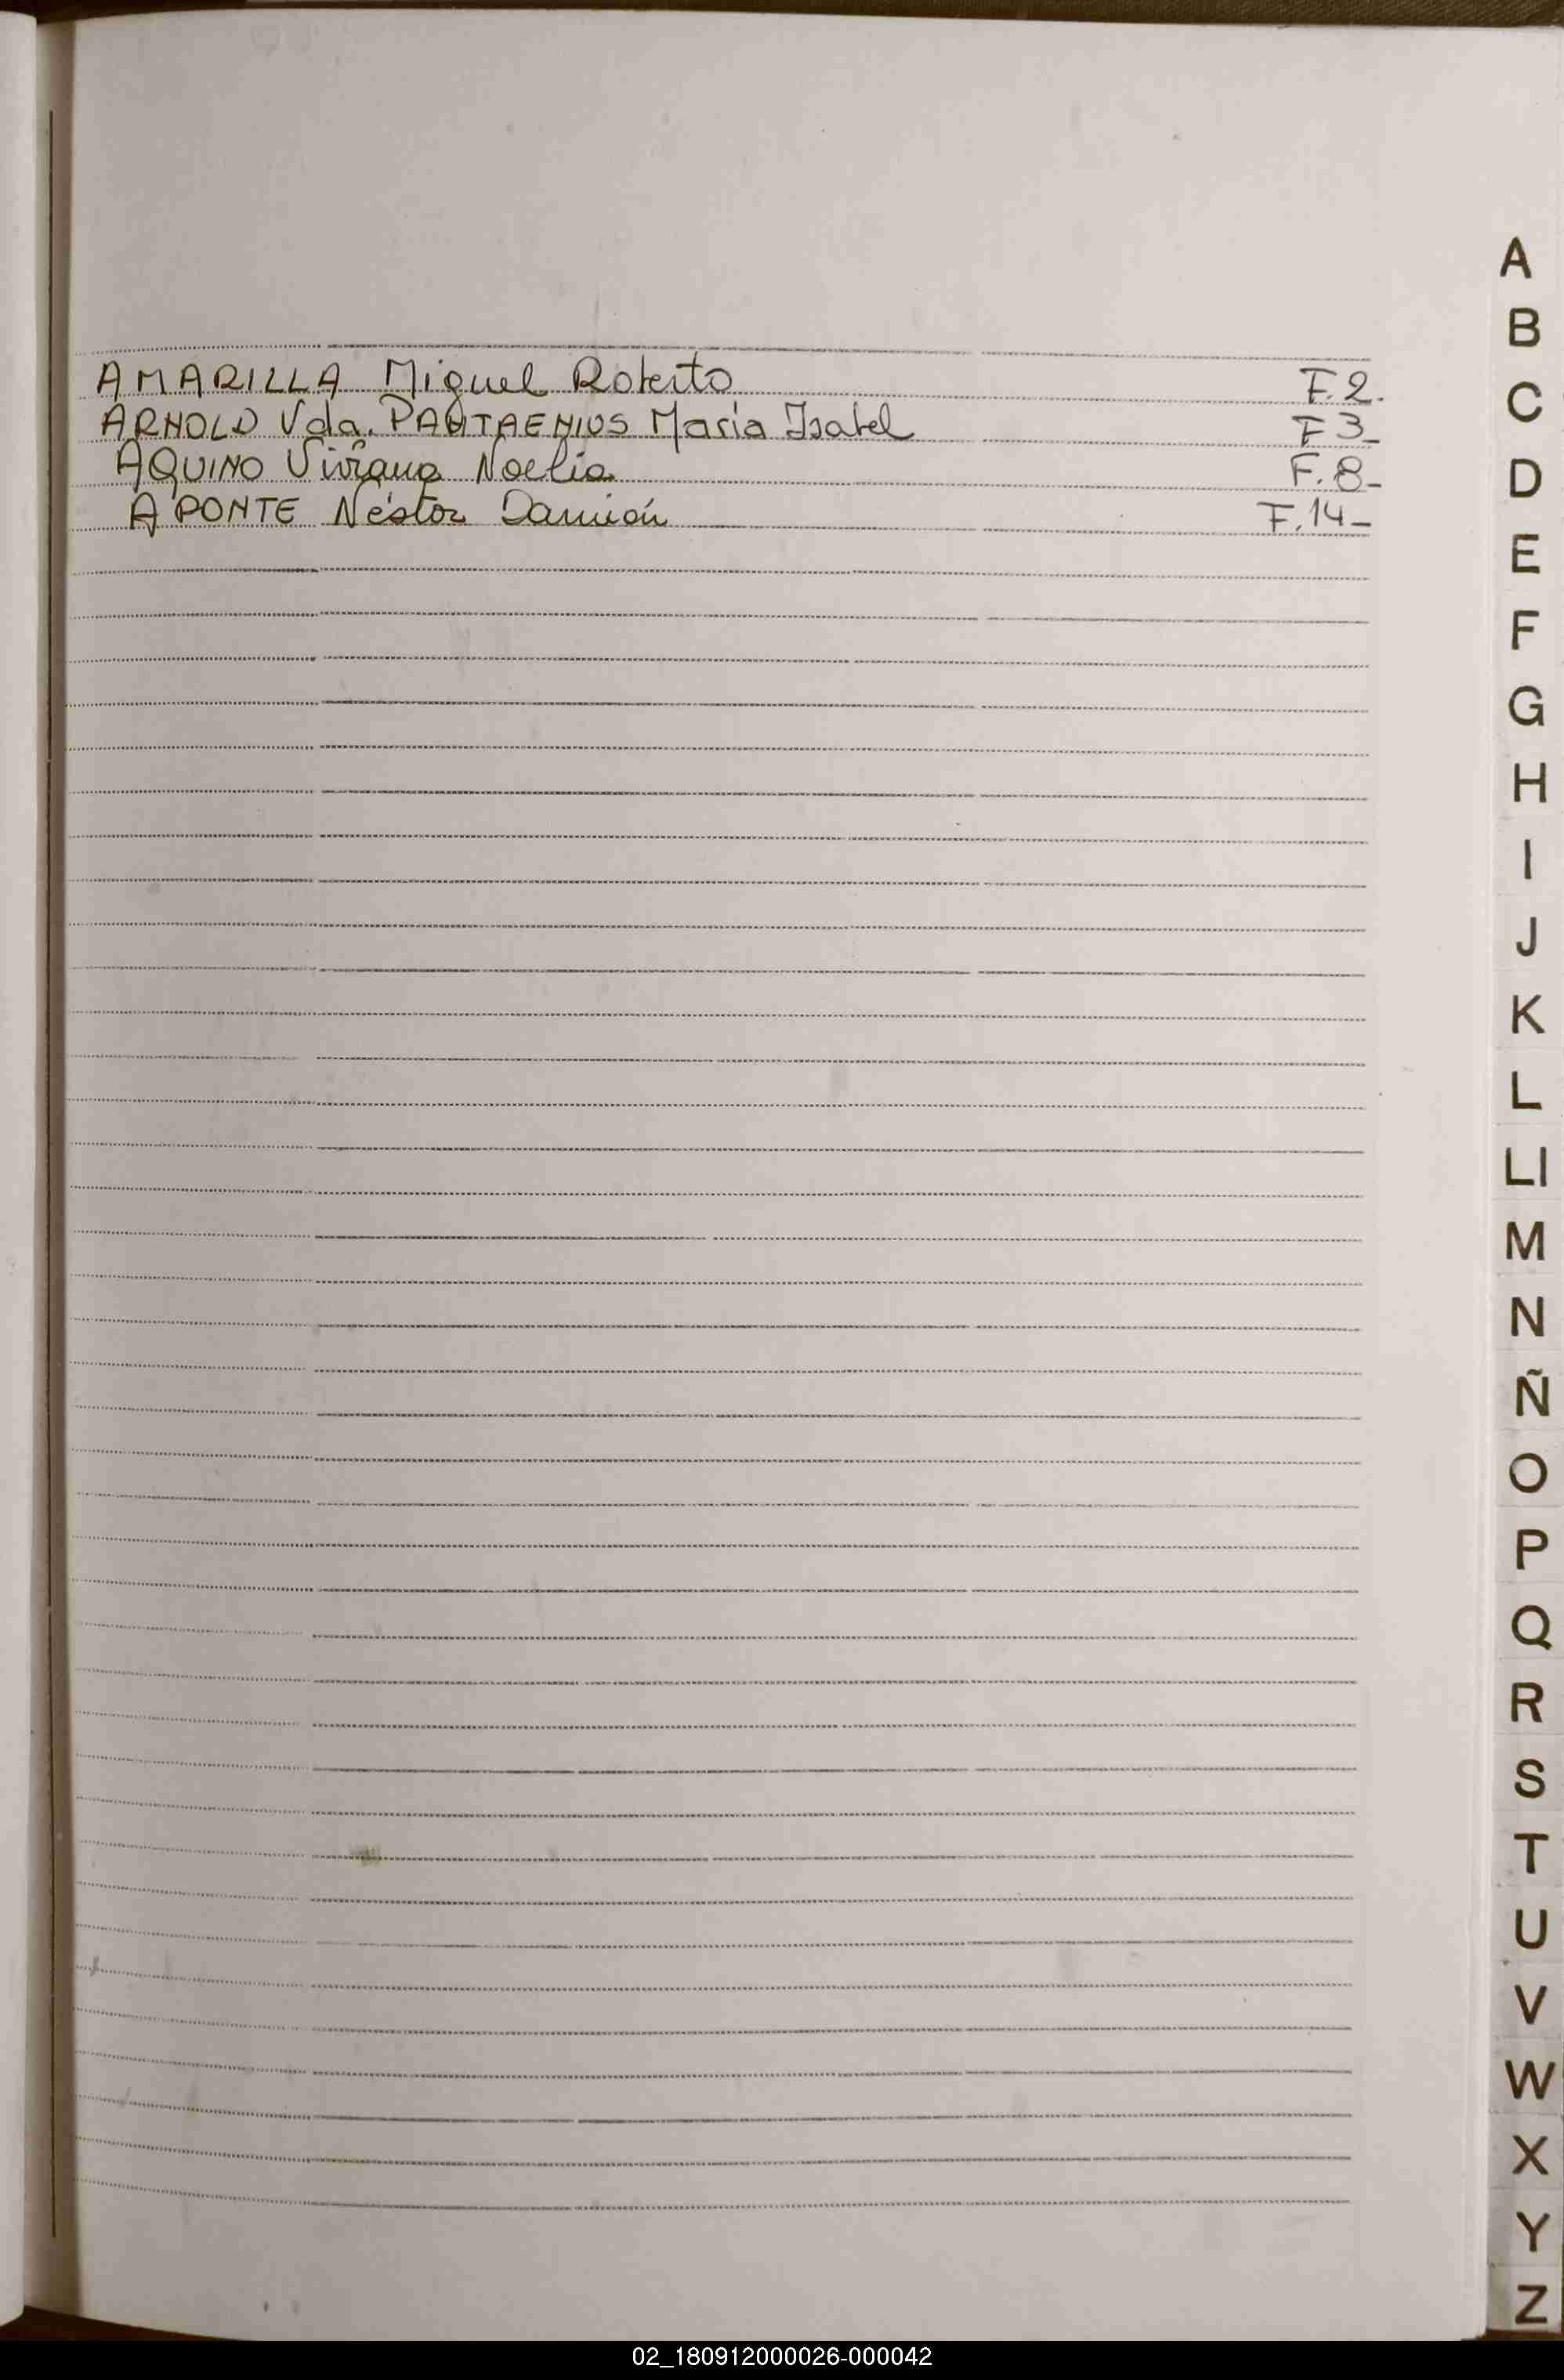 AMARILLA Miguel Roberto F.2.
ARNOLD Vda. PANTAENIUS María Isabel F 3_
AQUINO Viviana Noelia F.8_
APONTE Néstor Damián F.14_
A
B
C
D
E
F
G
H
I
J
K
L
Ll
M
N
Ñ
O
P
Q
R
S
T
U
V
W
X
Y
Z
02_180912000026-000042